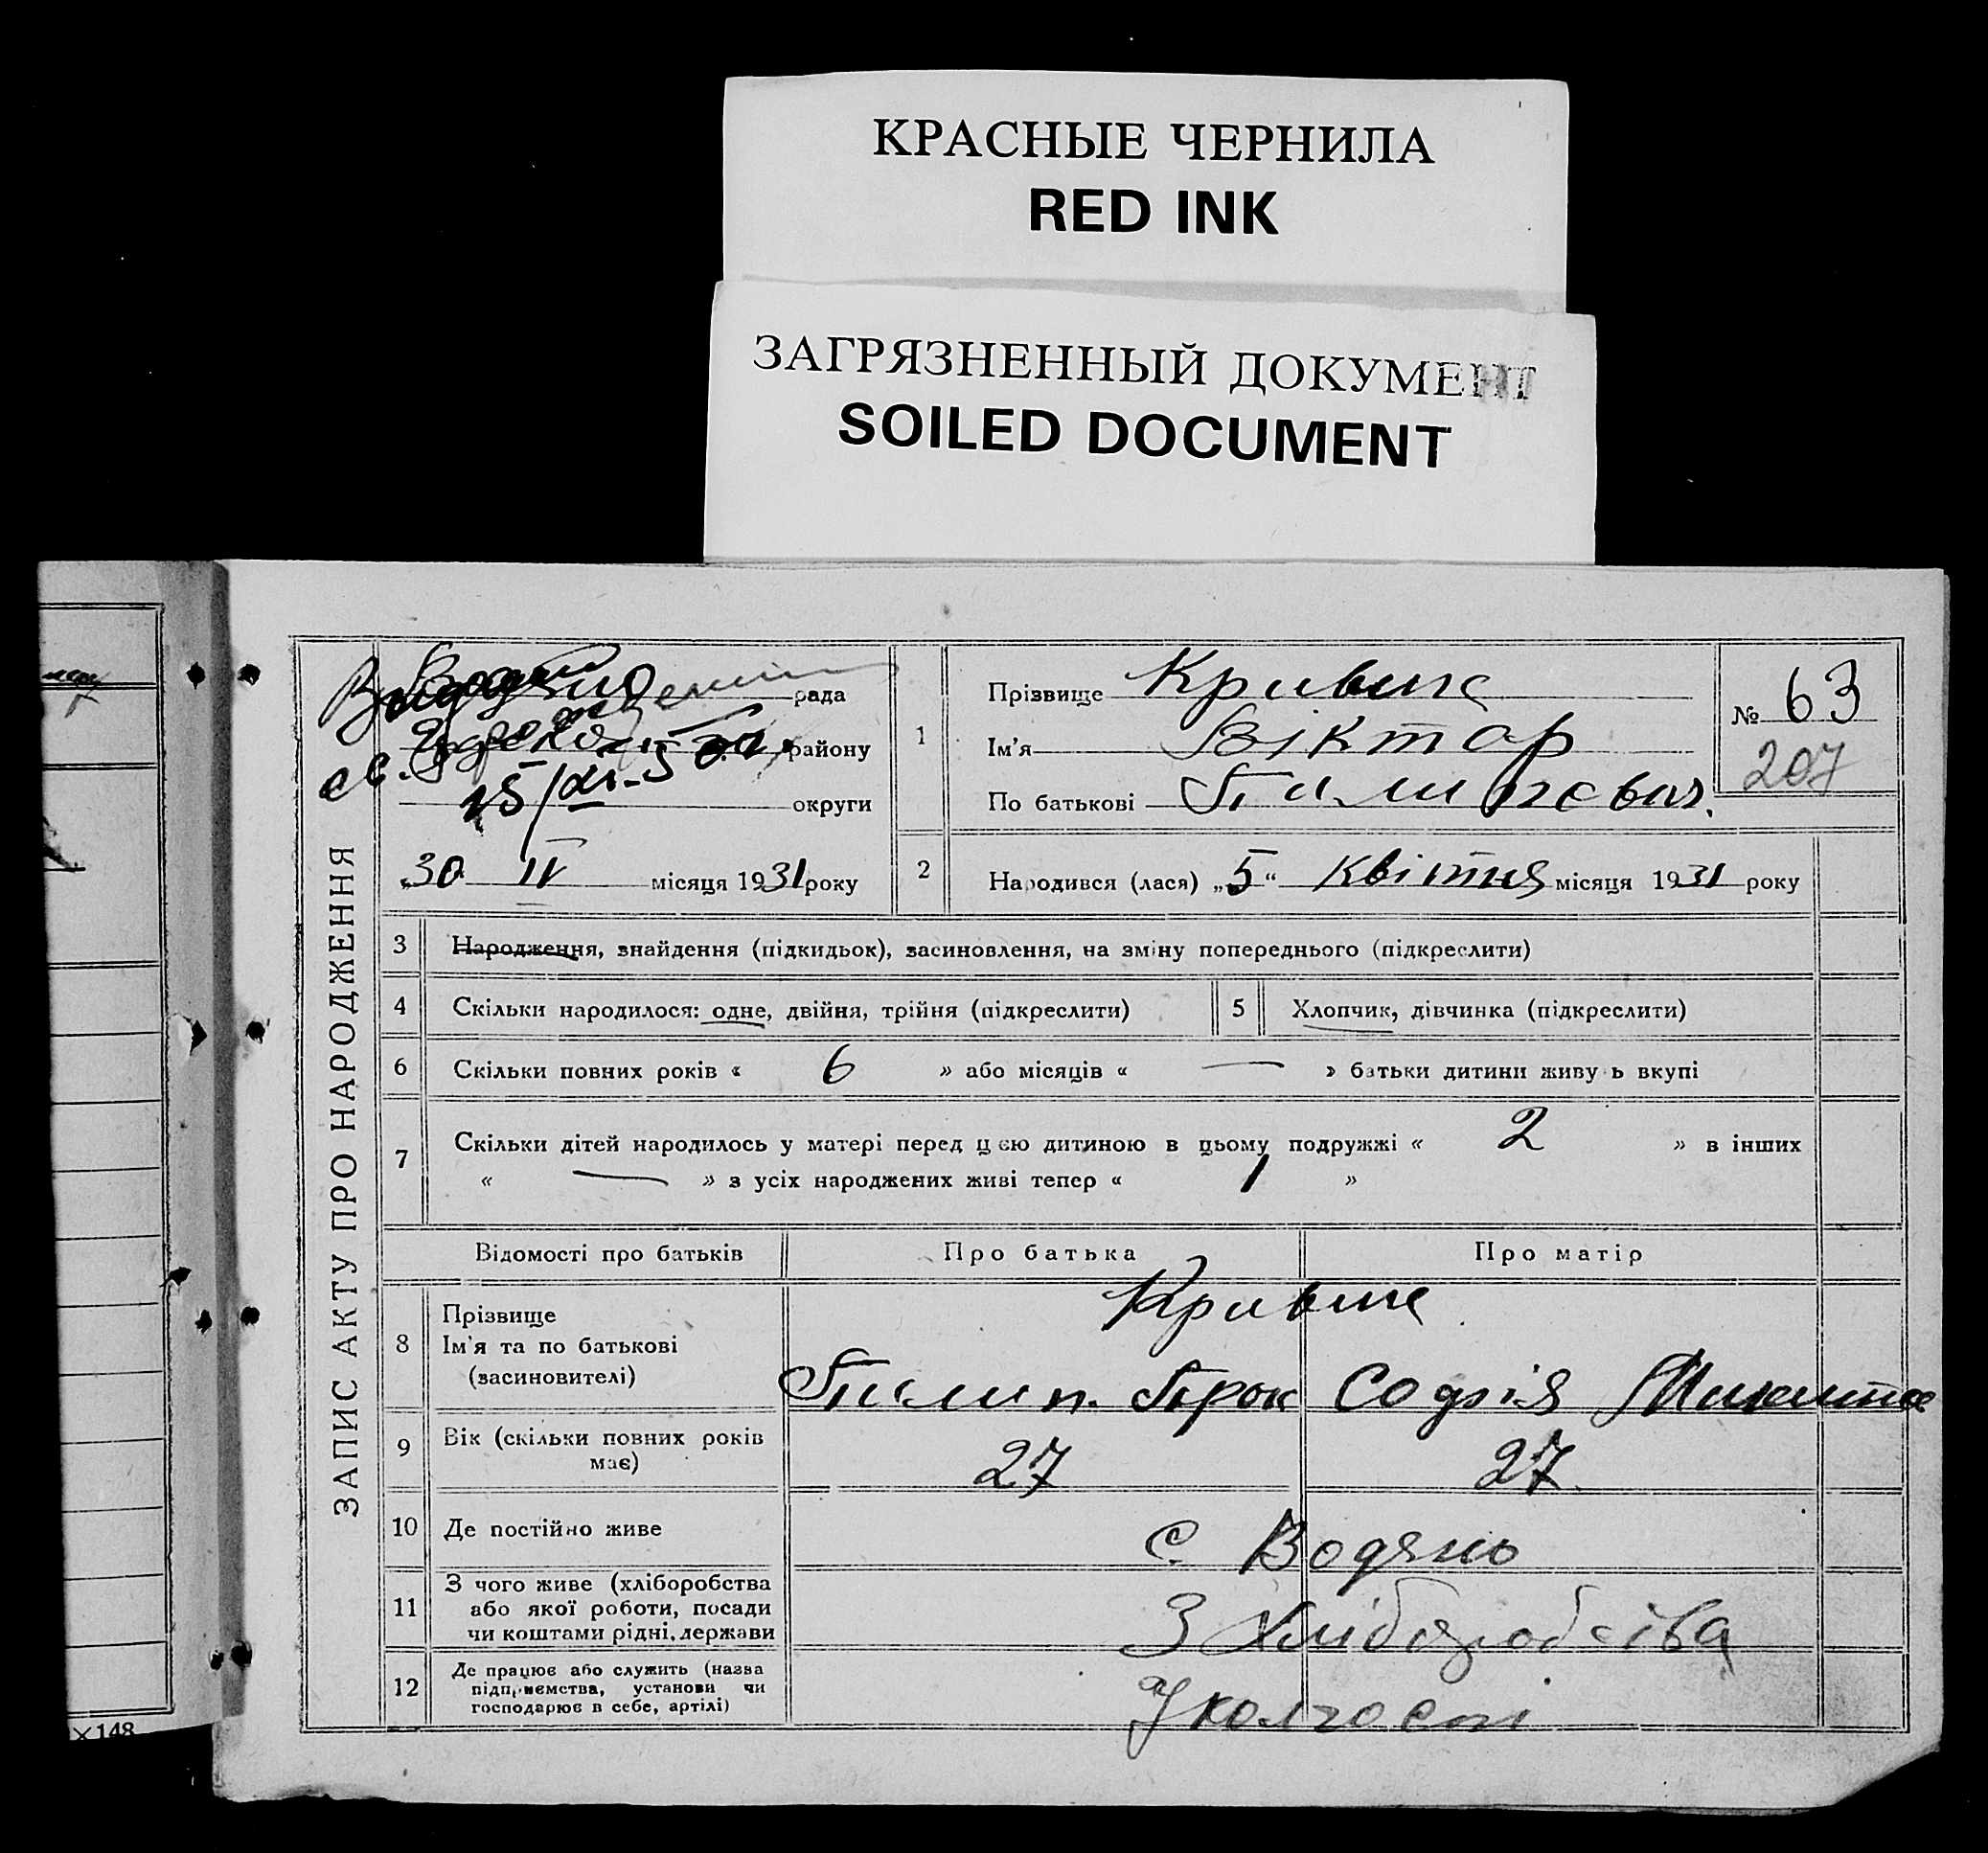 КРАСНЫЕ ЧЕРНИЛА
RED INK
ЗАГРЯЗНЕННЫЙ ДОКУМЕНТ
SOILED DOCUMENT
ЗАПИС АКТУ ПРО НАРОДЖЕННЯ
рада
району
15/XI-50
округи
„30 IV місяця 1931 року
1
Прізвище Кривше
Ім'я Віктор
По батькові Пилипович.
№ 63
207
2
Народився (лася) „5“ Квітня місяця 1931 року
3 Народження, знайдення (підкидьок), засиновлення, на зміну попереднього (підкреслити)
4 Скільки народилося: одне, двійня, трійня (підкреслити) 5 Хлопчик, дівчинка (підкреслити)
6 Скільки повних років « 6 » або місяців « — » батьки дитини живу ь вкупі
7 Скільки дітей народилось у матері перед цєю дитиною в цьому подружжі « 2 » в інших
« — » з усіх народжених живі тепер « 1 »
Відомості про батьків Про батька Про матір
8 Прізвище
Ім'я та по батькові
(засиновителі)
Кривше
Пилип. Прок Софія Микита
9 Вік (скільки повних років
має)
27 27
10 Де постійно живе с. Водяно
11 З чого живе (хліборобства
або якої роботи, посади
чи коштами рідні, держави
З Хліборобства
12 Де працює або служить (назва
підприємства, установи чи
господарює в себе, артілі)
У колгоспі
×148